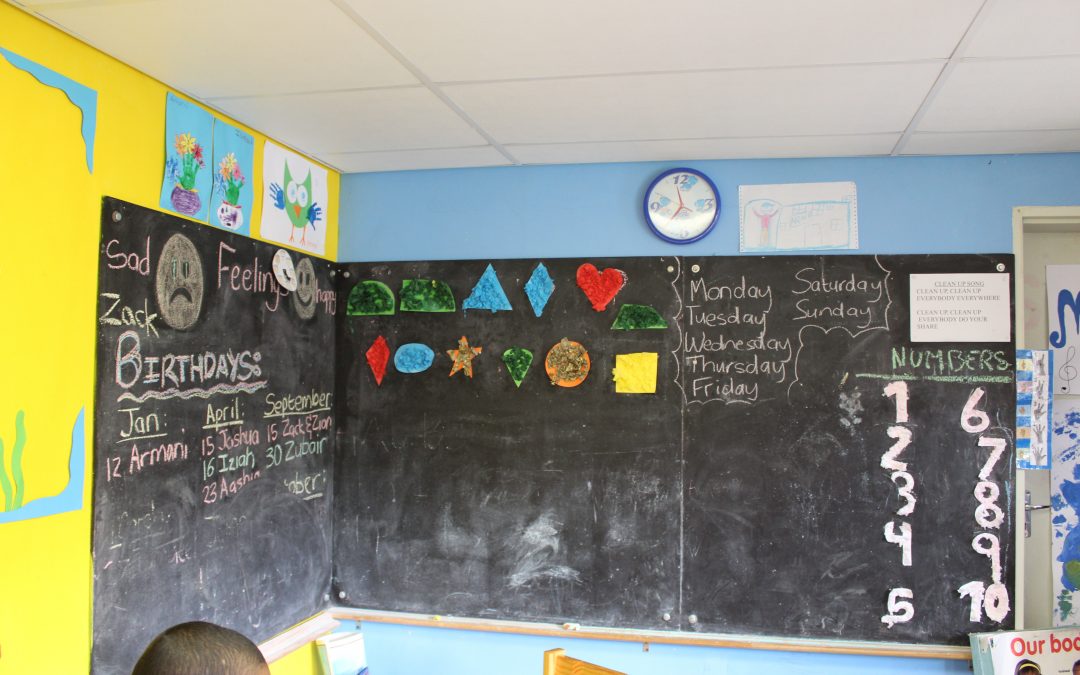 Sad
Feelings
happy
Zack
BIRTHDAYS:
Jan:
12 Armani
April:
15 Joshua
16 Iziah
23 Aashia
September:
15 Zack & Zion
30 Zubair
ober:
12
3
9
Monday
Tuesday
Wednesday
Thursday
Friday
Saturday
Sunday
CLEAN UP SONG
CLEAN UP, CLEAN UP
EVERYBODY EVERYWHERE
CLEAN UP, CLEAN UP
EVERYBODY DO YOUR
SHARE
NUMBERS
1
2
3
4
5
6
7
8
9
10
Our boo